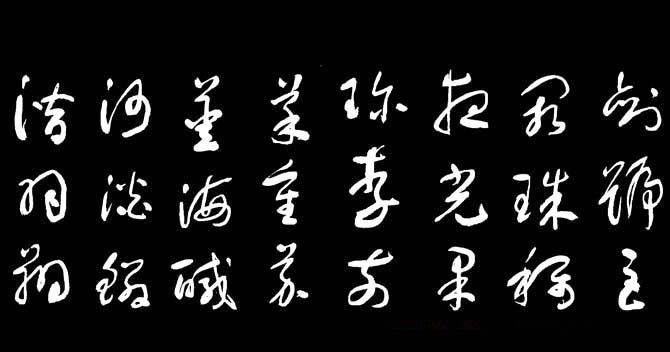 劍號巨
闕珠稱
夜光果
珍李柰
菜重芥
薑海鹹
河淡鱗
潛羽翔